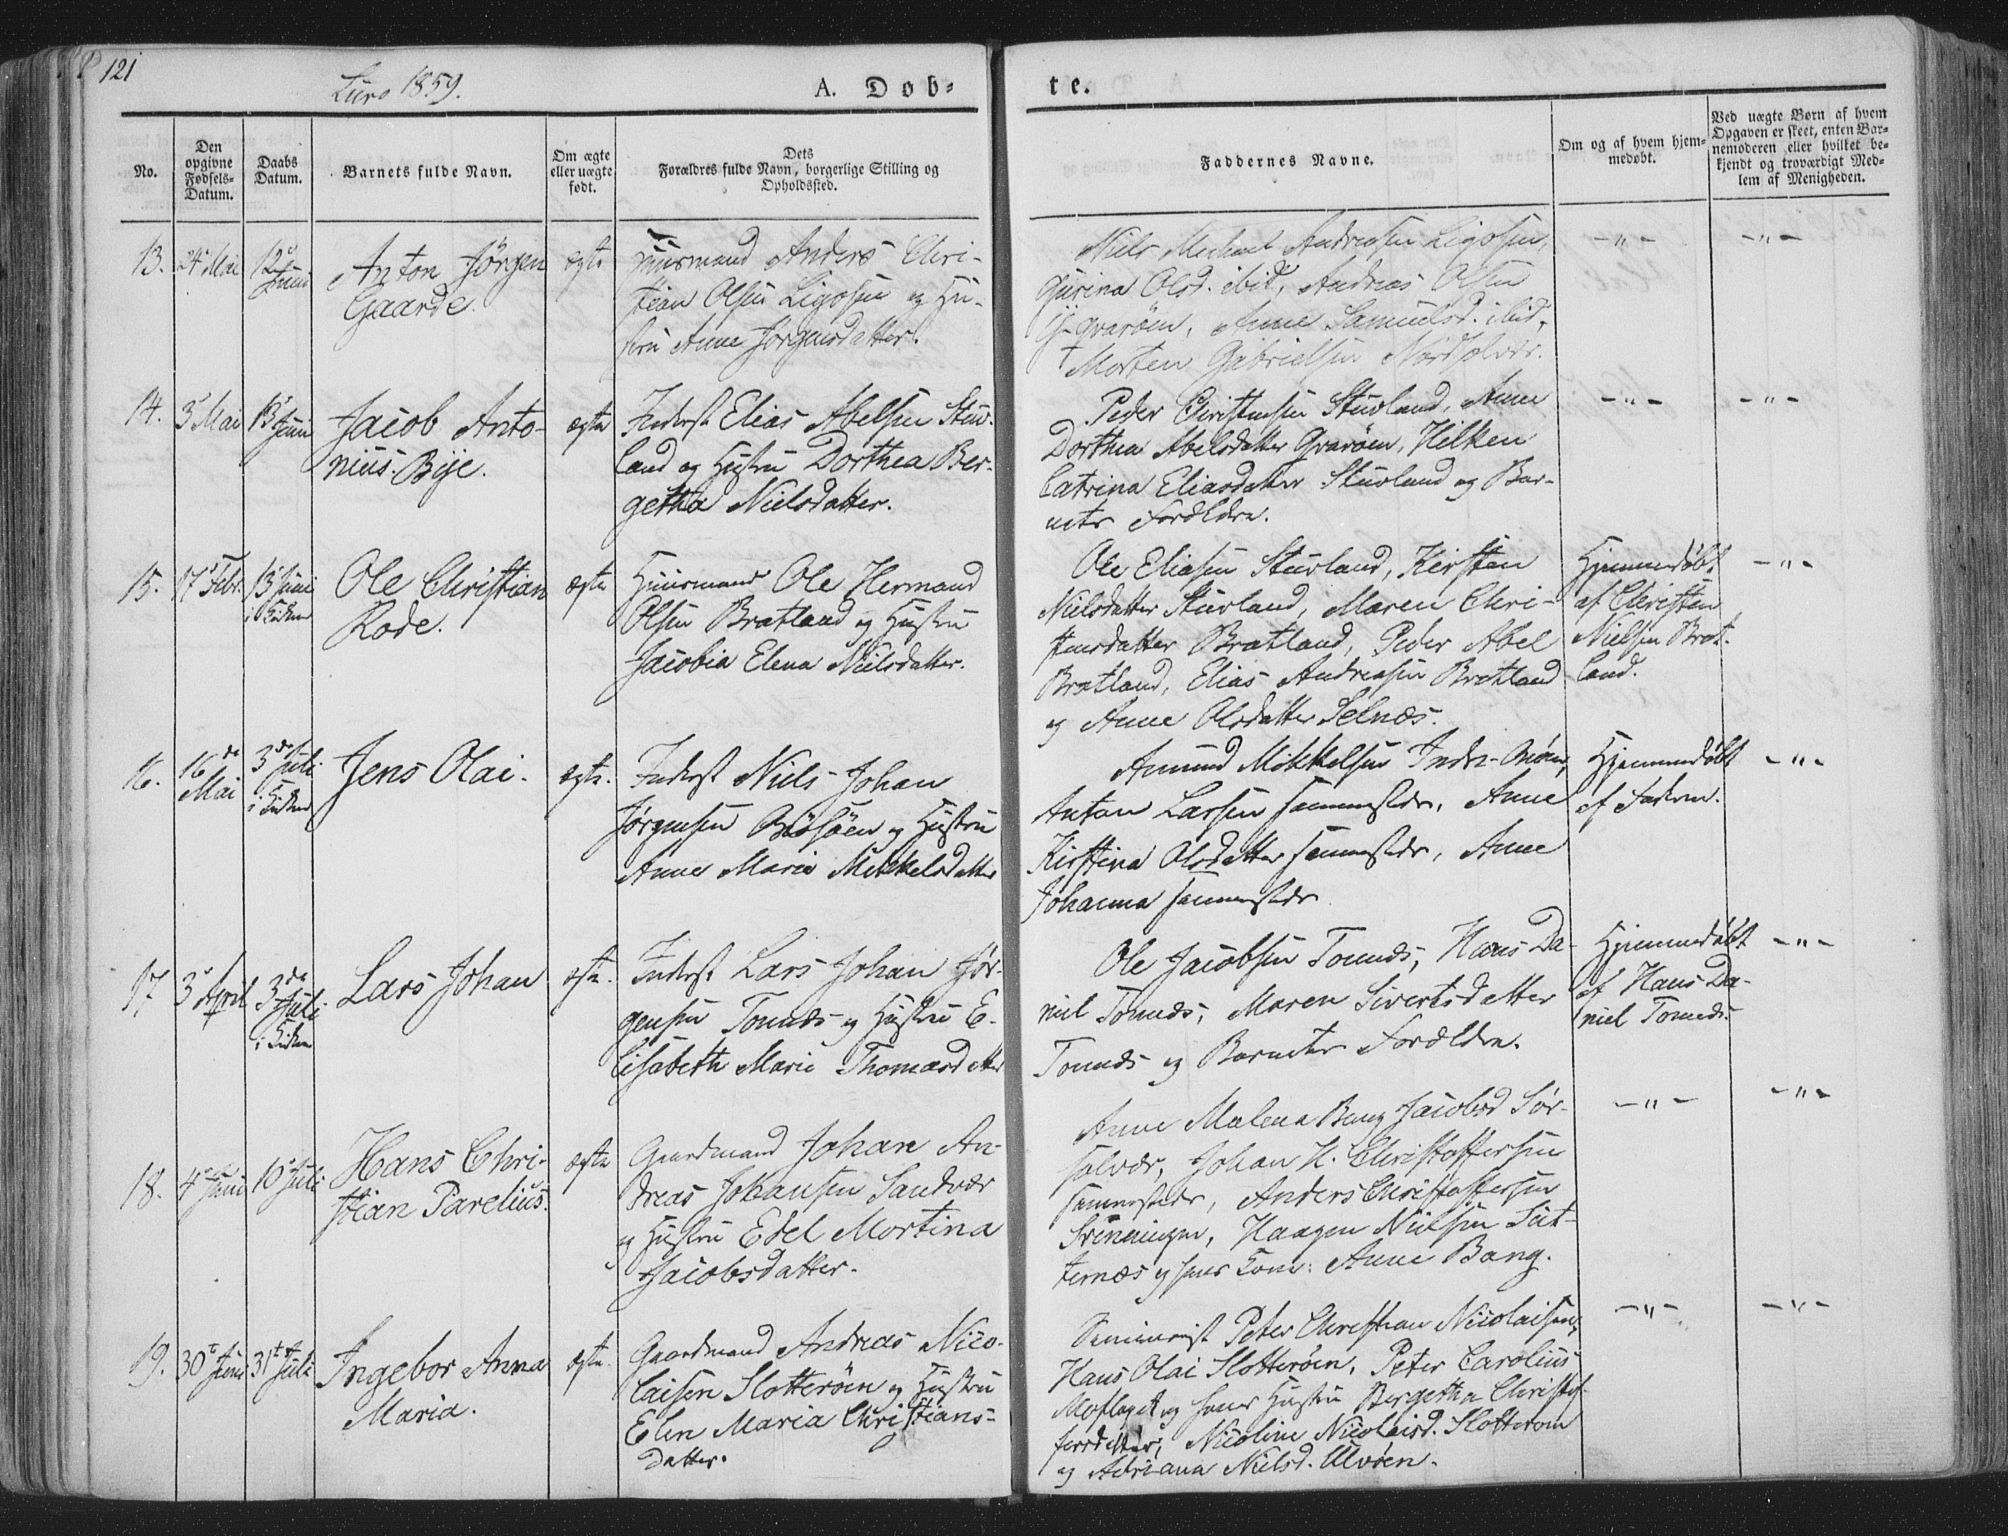 121
Lurø 1859.
A. Dob-
te.
No.
Den opgivne Fødsels-Datum.
Daabs Datum.
Barnets fulde Navn.
Om ægte eller uægte født.
Dets Forældres fulde Navn, borgerlige Stilling og Opholdssted.
Faddernes Navne.
Om og af hvem hjemmedøbt.
Ved uægte Børn af hvem Opgaven er skeet, enten Barnemoderen eller hvilket bekjendt og troværdigt Medlem af Menigheden.
13. 24 Mai 12 Juni
Anton Jørgen
Gaarde.
ægte
Huusmand Anders Chri-
stian Olsen Ligosen og Hu-
stru Anne Jørgensdatter.
Niels Michael Andreasen Ligosen,
Gurina Olsd. ibid, Andreas Olsen
Hqvarøen, Anne Samuelsd. ibid,
Morten Gabrielsen Nordsolvær.
-"- -"-
14. 3 Mai 13 Juni
Jacob Anto-
nius Bye.
ægte
Inderst Elias Abelsen Stuv-
land og Hustru Dorthea Ber-
getha Nielsdatter.
Peder Christensen Stuvland, Anne
Dorthea Abelsdatter Qvarøen, Hilken
Catrina Eliasdatter Stuvland og Bar-
nets Forældre.
-"- -"-
15. 17 Febr. 13 Juni
i Kirken
Ole Christian
Rode.
ægte
Huusmand Ole Hermand
Olsen Bratland og Hustru
Jacobia Elena Nielsdatter.
Ole Eliasen Stuvland, Kirsten
Nielsdatter Stuvland, Maren Chri-
stensdatter Bratland, Peder Abel
Bratland, Elias Andreasen Bratland
og Anne Olsdatter Selnæs.
Hjemmedøbt
af Christen
Nielsen Brat-
land.
-"-
16. 16de Mai 3de Juli
i Kirken
Jens Olai.
ægte.
Inderst Niels Johan
Jørgensen Buøsøen og Hustru
Anne Maria Mikkelsdatter
Amund Mikkelsen Indr-Brøen,
Anton Larsen sammesteds, Anne
Kirstina Olsdatter sammesteds, Anne
Johanna sammesteds
Hjemmedøbt
af Faderen.
-"-
17 3 April 3de Juli
i Kirken
Lars Johan
ægte.
Inderst Lars Johan Jør-
gensen Tonnæs og Hustru E-
lisabeth Marie Thomasdatter
Ole Jacobsen Tonnæs, Hans Da-
niel Tonnæs, Maren Sivertsdatter
Tonnæs og Barnets Forældre.
Hjemmedøbt
af Hans Da-
niel Tonnæs.
-"-
18. 4 Juni 10 Juli
Hans Chri-
stian Parelius.
ægte
Gaardmand Johan An-
dreas Johansen Sandvær
og Hustru Edel Mortina
Jacobsdatter.
Anne Malena Bang Jacobsd Sør-
solvær, Johan H. Christoffersen
sammesteds, Anders Christoffersen
Svenningen, Haagen Nielsen Süt-
ternæs og hans Kone: Anne Bang.
-"- -"-
19. 30te Juni 31te Juli
Ingebor Anna
Maria.
ægte.
Gaardmand Andreas Nico-
laisen Slotterøen og Hustru
Elen Maria Christians-
datter.
Seminarist Peter Christian Nicolaisen,
Hans Olai Slotterøen, Peter Carolius
Moflaget og hans Hustru Bergetha Christof-
fersdatter, Nicoline Nicolaisd. Slotterøen
og Adriana Nielsd. Ulvøen.
-"- -"-